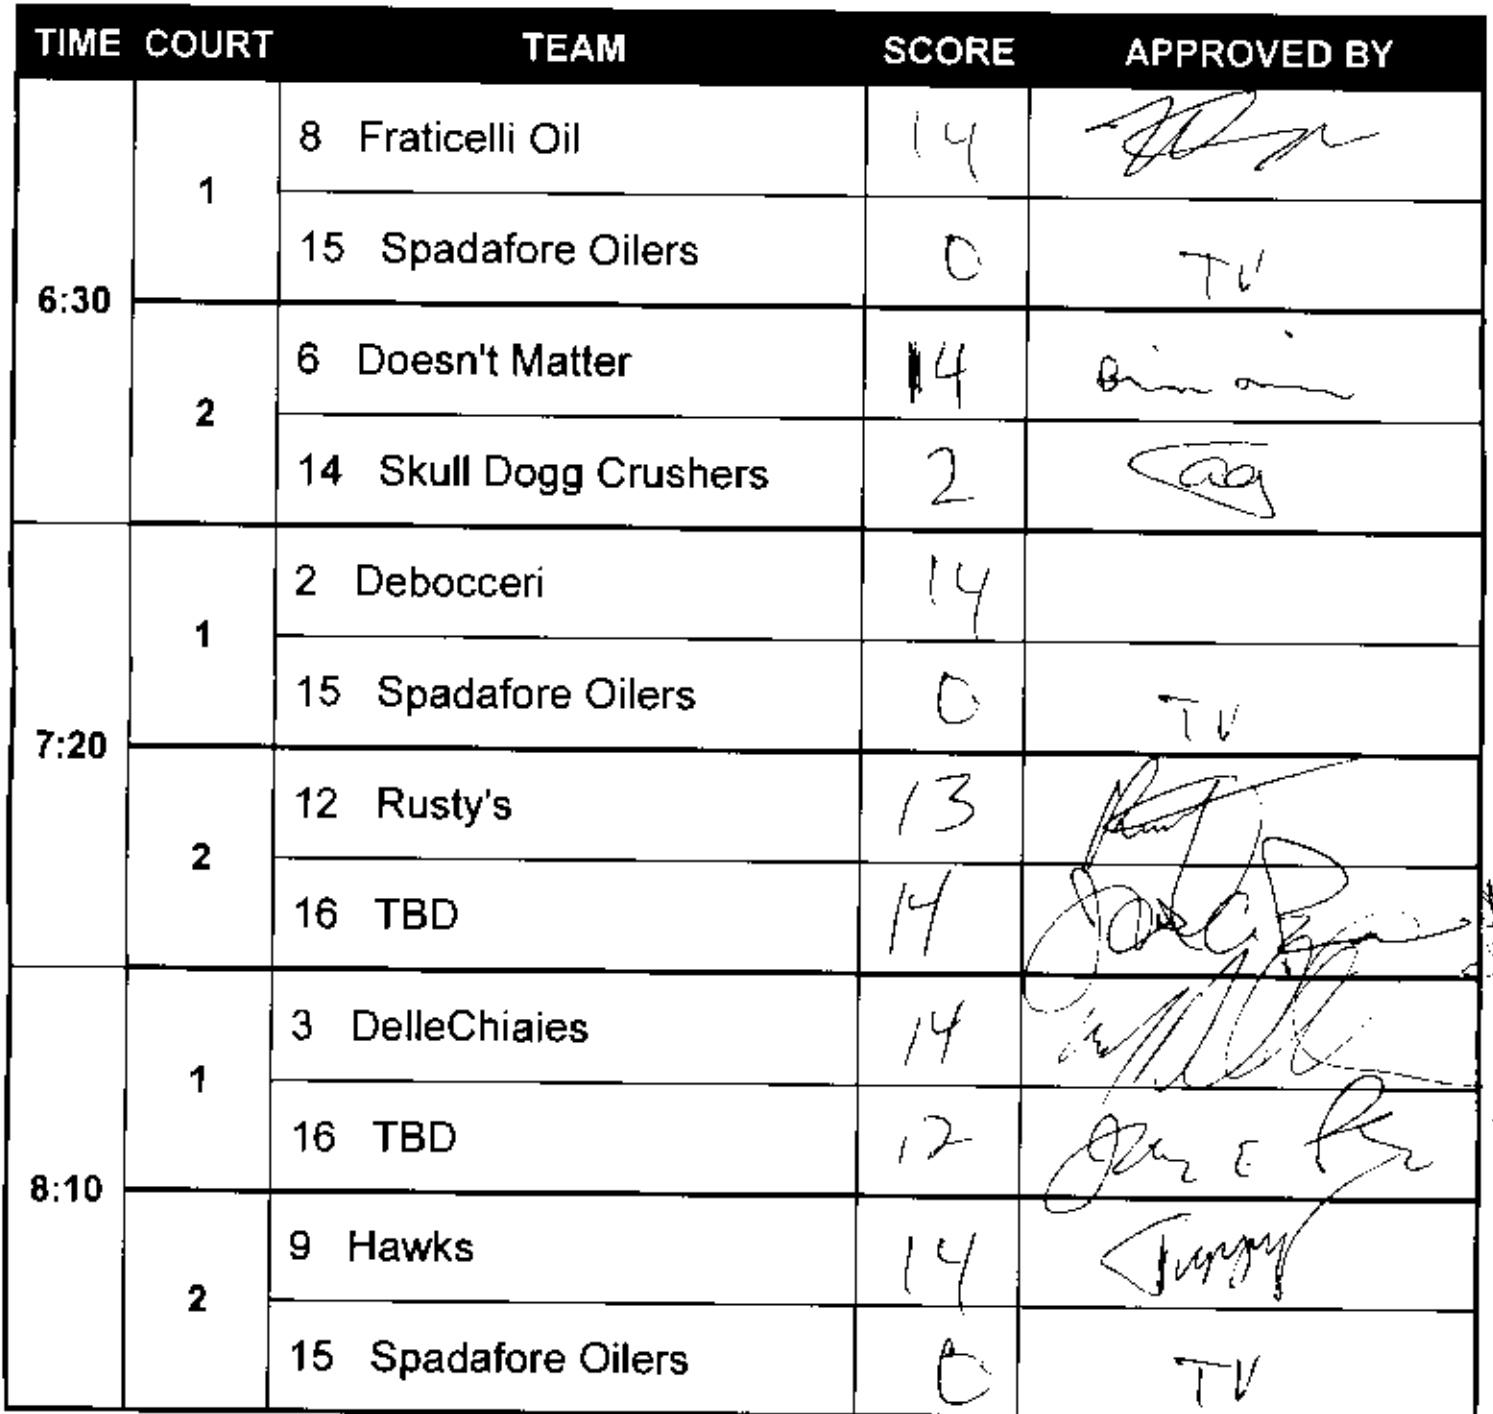 TIME COURT TEAM SCORE APPROVED BY
6:30
1
8 Fraticelli Oil 14
15 Spadafore Oilers 0 TV
2
6 Doesn't Matter 14
14 Skull Dogg Crushers 2
7:20
1
2 Debocceri 14
15 Spadafore Oilers 0 TV
2
12 Rusty's 13
16 TBD 14
8:10
1
3 DelleChiaies 14
16 TBD 12
2
9 Hawks 14
15 Spadafore Oilers 0 TV